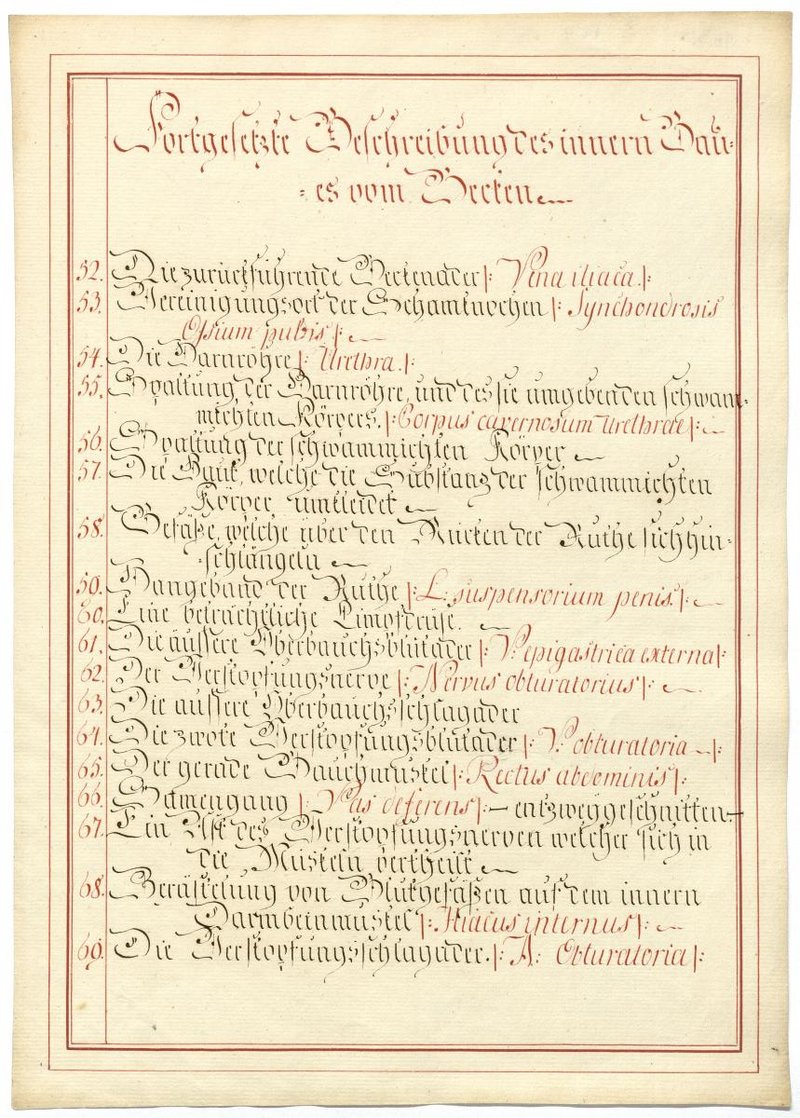 Fortgesetzte Beschreibung des innern Bau-
-es vom Becken
52. Die zurückführende Beckenader |: Vena iliaca :|
53. Vereinigungsort der Schamknochen |: Synchondrosis
Ossium pubis :|
54. Die Harnröhre |: Urethra. :|
55. Spaltung der Harnröhre, und des sie umgebenden schwam-
michten Körpers, |: Corpus cavernosum Urethrae :|
56. Spaltung der schwammichten Körper
57. Die Haut, welche die Substanz der schwammichten
Körper umkleidet
58. Gefäße, welche über den Rücken der Ruthe sich hin-
-schlängeln
59. Hangeband der Ruthe |: L. suspensorium penis. :|
60. Eine beträchtliche Limpfdrüse.
61. Die äussere Oberbauchsblutader |: V. epigastrica externa :|
62. Der Verstopfungsnerve |: Nervus obturatorius :|
63. Die äussere Oberbauchsschlagader
64. Die zwote Verstopfungsblutader |: V. obturatoria :|
65. Der gerade Bauchmuskel |: Rectus abdominis :|
66. Samengang |: Vas deferens :| — entzwey geschnitten —
67. Ein Ast des Verstopfungsnerven welcher sich in
die Muskeln vertheilt
68. Verästelung von Blutgefäßen auf dem innern
Darmbeinmuskel |: Iliacus internus :|
69. Die Verstopfungsschlagader. |: A: Obturatoria :|